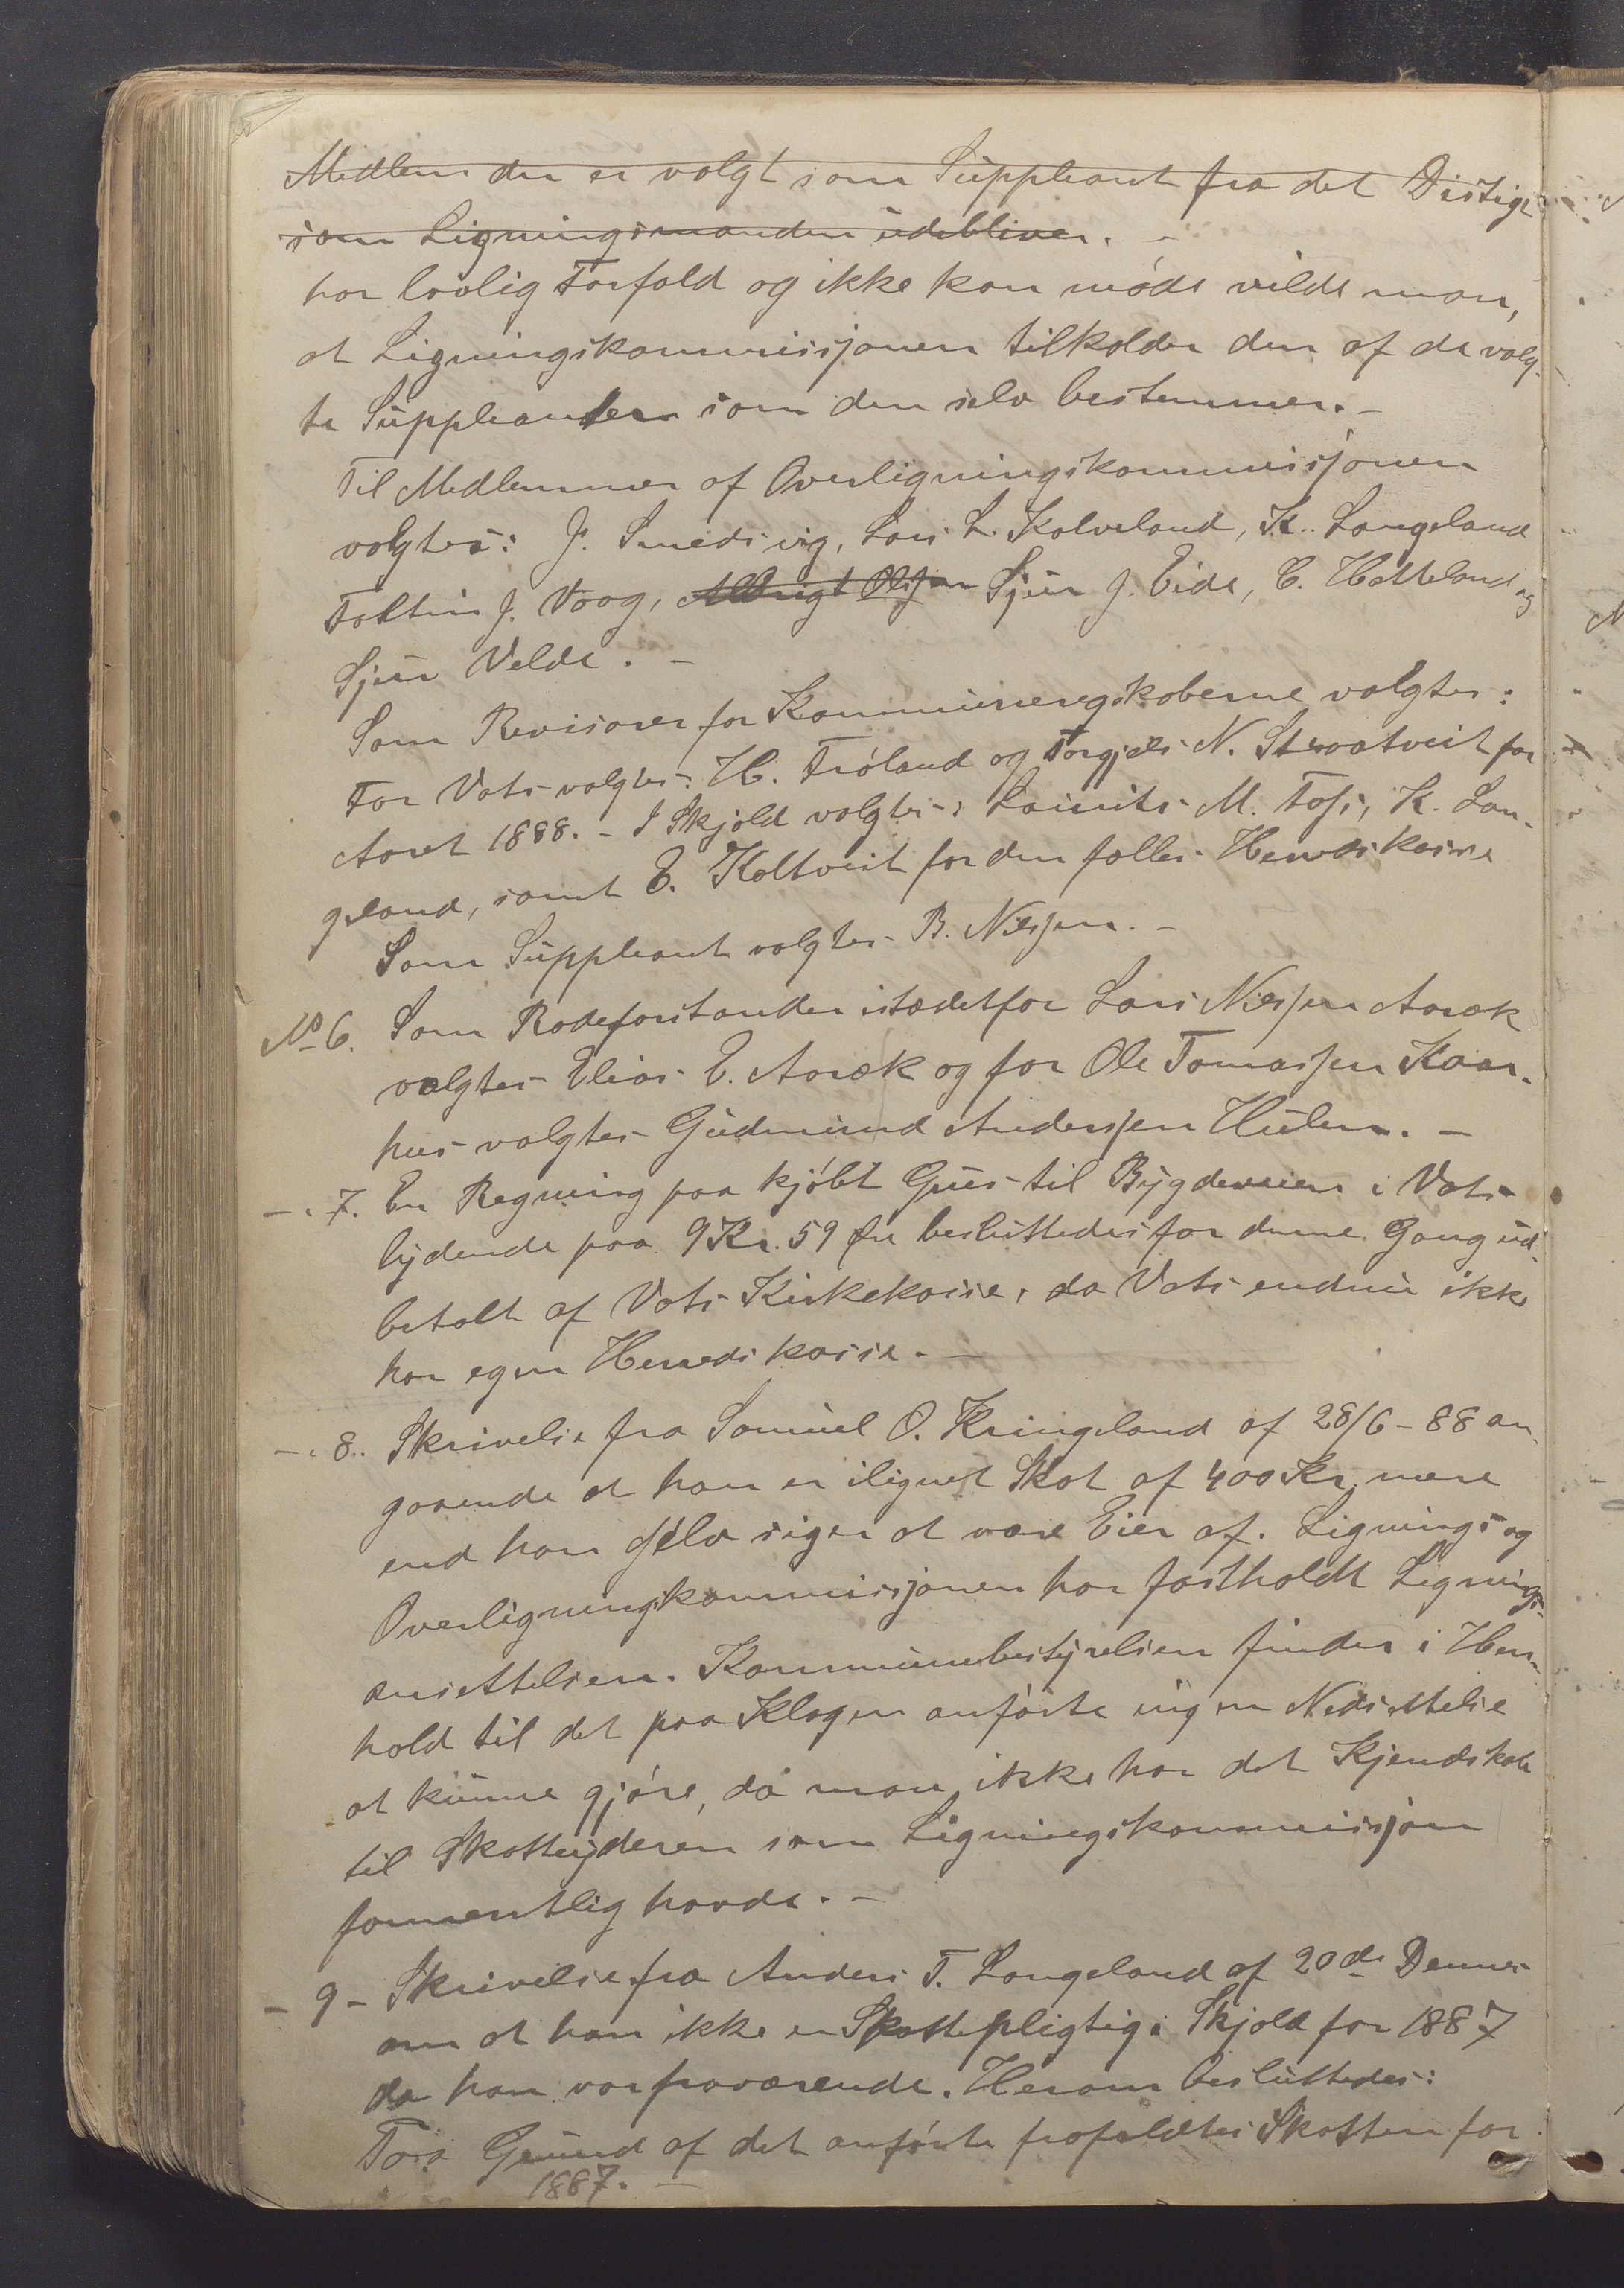 Medlem der er valgt som Suppleant fra det Distigt
som Ligningsmanden udebliver. -
har lovlig Forfald og ikke kan møde vilde man,
at Ligningskommissjonen tilkalder den af de valg-
te Suppleanter som den selv bestemmer. -
Til Medlemmer af Overligningskommissjonen
valgtes: J. Smedsvig, Lars L. Kalveland, K. Langeland
Foltin J. Vaag, Sjur J. Eide, C. Hatteland og
Sjur Velde. -
Som Revisorer for Kommuneregskaberne valgtes:
For Vats valgtes: H. Frøland og Torgjels N. Straatveit for
Aaret 1888. - I Skjold valgtes: Laurits M. Tofs, K. Lan-
geland, samt E. Koltveit for den fælles Herredskasse
Som Suppleant valgtes B. Nilssen. -
No 6. Som Rodeforstander istædetfor Lars Nilssen Aaræk
valgtes Elias E. Aaræk og for Ole Tomassen Kaar-
hus valgtes Gudmund Anderssen Hulen. -
- " 7. En Regning paa kjøbt Grus til Bygdeveien i Vats
lydende paa 9 Kr. 59 Øre besluttedes for denne Gang ud-
betalt af Vats Kirkekasse, da Vats endnu ikke
har egen Herredskasse. -
- " 8. Skrivelse fra Samuel O. Kringeland af 28/6 - 88 an-
gaaende at han er ilignet Skat af 400 Kr. mere
end han selv siger at være Eier af. Lignings og
Overligningskommissjonen har fastholdt Lignings-
ansettelsen. Kommunebestyrelsen finder i Hen-
hold til det paa Klagen anførte ingen Nedsættelse
at kunne gjøre, da man ikke har det Kjendskab
til Skatteyderen som Ligningskommissjon
formentlig havde. -
- 9 - Skrivelse fra Anders T. Langeland af 20de Dennes
om at han ikke er Skattepligtig i Skjold for 1887
da han var fraværende. Herom besluttedes:
Paa Grund af det anførte frafaldtes Skatten for
1887. -